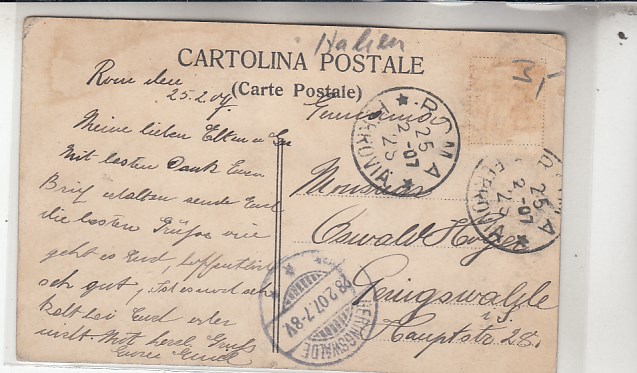 Italien
CARTOLINA POSTALE
(Carte Postale)
3,-
Rom den
25.2.07.
Meine lieben Eltern u
Mit besten Dank Euren
Brief erhalten sende Euch
die besten Grüße wie
geht es Euch, hoffentlich
sehr gut, ist es auch
kalt bei Euch oder
nicht. Mit herzl. Gruß
Euer
Germania
Monsieur
Oswald
i. S.
Hauptstr. 28.
ROMA
25
2-07
23
FERROVIA
ROMA
25
2-07
23
FERROVIA
GERINGSWALDE
28.2.07.7-8V.